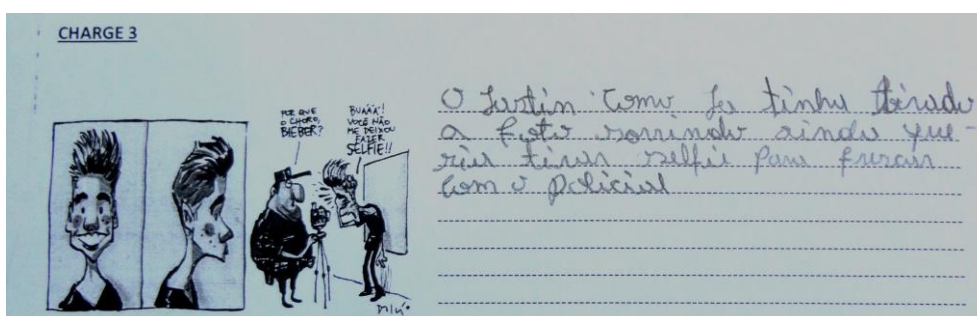 CHARGE 3
POR QUE
O CHORO,
BIEBER?
BUÁÁÁ!
VOCÊ NÃO
ME DEIXOU
FAZER
SELFIE!!
O Justin como Ja tinha tirado
a foto sorrindo ainda que-
ria tirar selfie para
com o policial